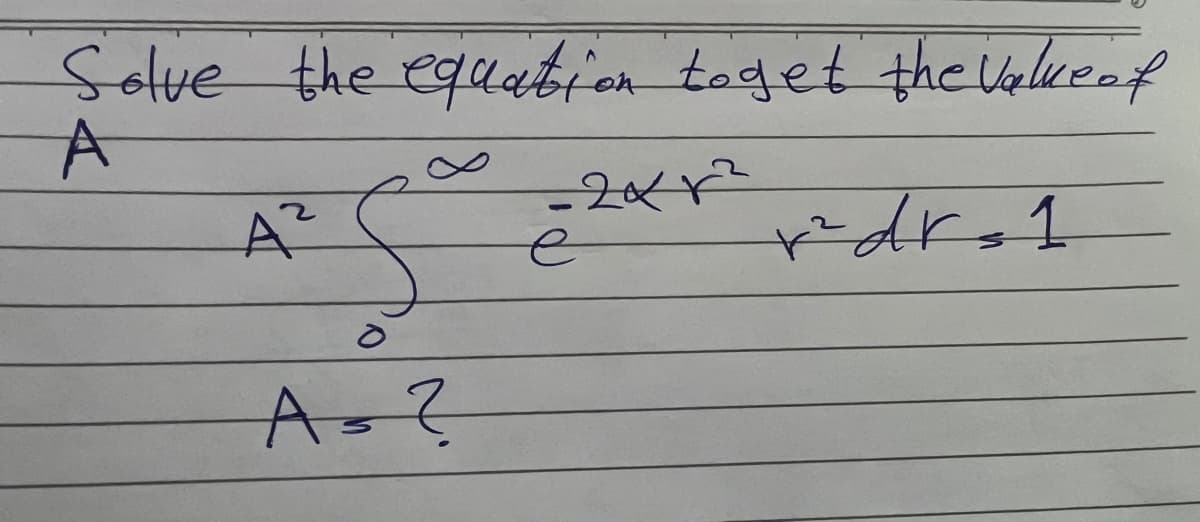 Solve the equation to get the Value of
A
A² ∫₀^∞ e^(-2αr²) r² dr = 1
A = ?